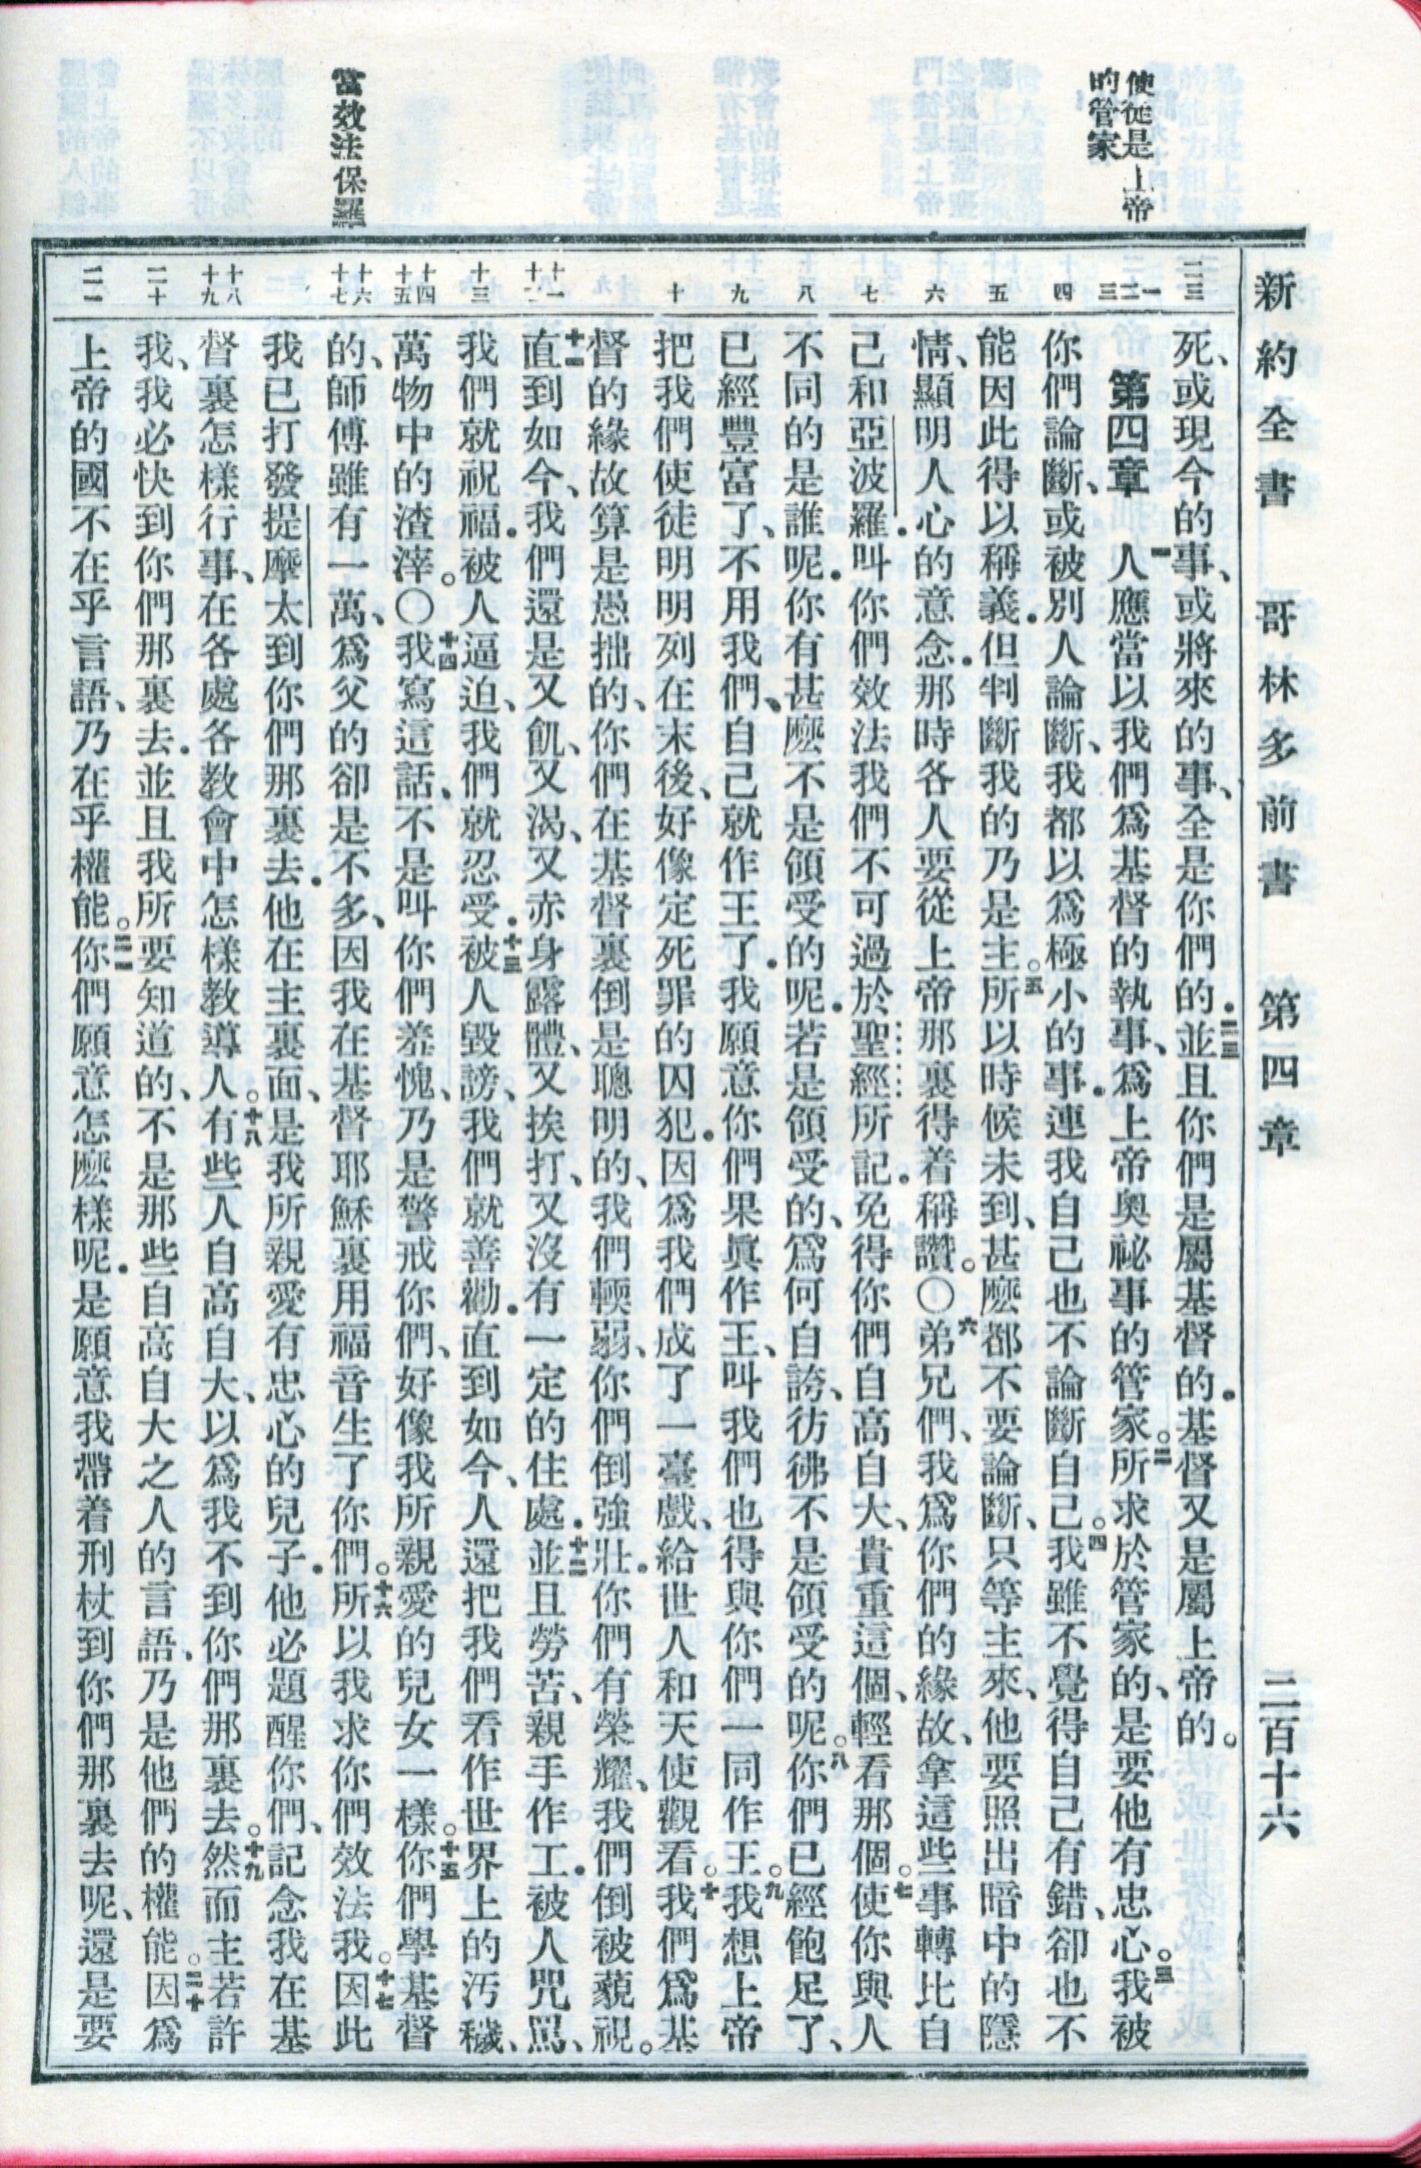 新約全書 哥林多前書 第四章 二百十六
使徒是上帝
的管家
當效法保羅
二三
一二三
四
五
六
七
八
九
十
十一十二
十三
十四十五
十六十七
十八十九
二十
二一
死、或現今的事、或將來的事、全是你們的.二三並且你們是屬基督的.基督又是屬上帝的。
第四章 一人應當以我們爲基督的執事、爲上帝奧祕事的管家。二所求於管家的、是要他有忠心。三我被
你們論斷、或被別人論斷、我都以爲極小的事.連我自己也不論斷自己。四我雖不覺得自己有錯、卻也不
能因此得以稱義.但判斷我的乃是主。五所以時候未到、甚麼都不要論斷、只等主來、他要照出暗中的隱
情、顯明人心的意念.那時各人要從上帝那裏得着稱讚。〇六弟兄們、我爲你們的緣故、拿這些事轉比自
己和亞波羅.叫你們效法我們不可過於聖經所記。免得你們自高自大、貴重這個、輕看那個。七使你與人
不同的是誰呢.你有甚麼不是領受的呢.若是領受的、爲何自誇、彷彿不是領受的呢。八你們已經飽足了、
已經豐富了、不用我們、自己就作王了.我願意你們果眞作王、叫我們也得與你們一同作王。九我想上帝
把我們使徒明明列在末後、好像定死罪的囚犯.因爲我們成了一臺戲、給世人和天使觀看。十我們爲基
督的緣故算是愚拙的、你們在基督裏倒是聰明的、我們輭弱、你們倒強壯.你們有榮耀、我們倒被藐視。
十一直到如今、我們還是又飢、又渴、又赤身露體、又挨打、又沒有一定的住處.十二並且勞苦、親手作工.被人咒駡、
我們就祝福.被人逼迫、我們就忍受.十三被人毀謗、我們就善勸.直到如今、人還把我們看作世界上的汚穢、
萬物中的渣滓。〇十四我寫這話、不是叫你們羞愧、乃是警戒你們、好像我所親愛的兒女一樣。十五你們學基督
的、師傅雖有一萬、爲父的卻是不多、因我在基督耶穌裏用福音生了你們。十六所以我求你們效法我。十七因此
我已打發提摩太到你們那裏去.他在主裏面、是我所親愛有忠心的兒子.他必題醒你們、記念我在基
督裏怎樣行事、在各處各教會中怎樣教導人。十八有些人自高自大、以爲我不到你們那裏去。十九然而主若許
我、我必快到你們那裏去.並且我所要知道的、不是那些自高自大之人的言語、乃是他們的權能。二十因爲
上帝的國不在乎言語、乃在乎權能。二一你們願意怎麼樣呢.是願意我帶着刑杖到你們那裏去呢、還是要